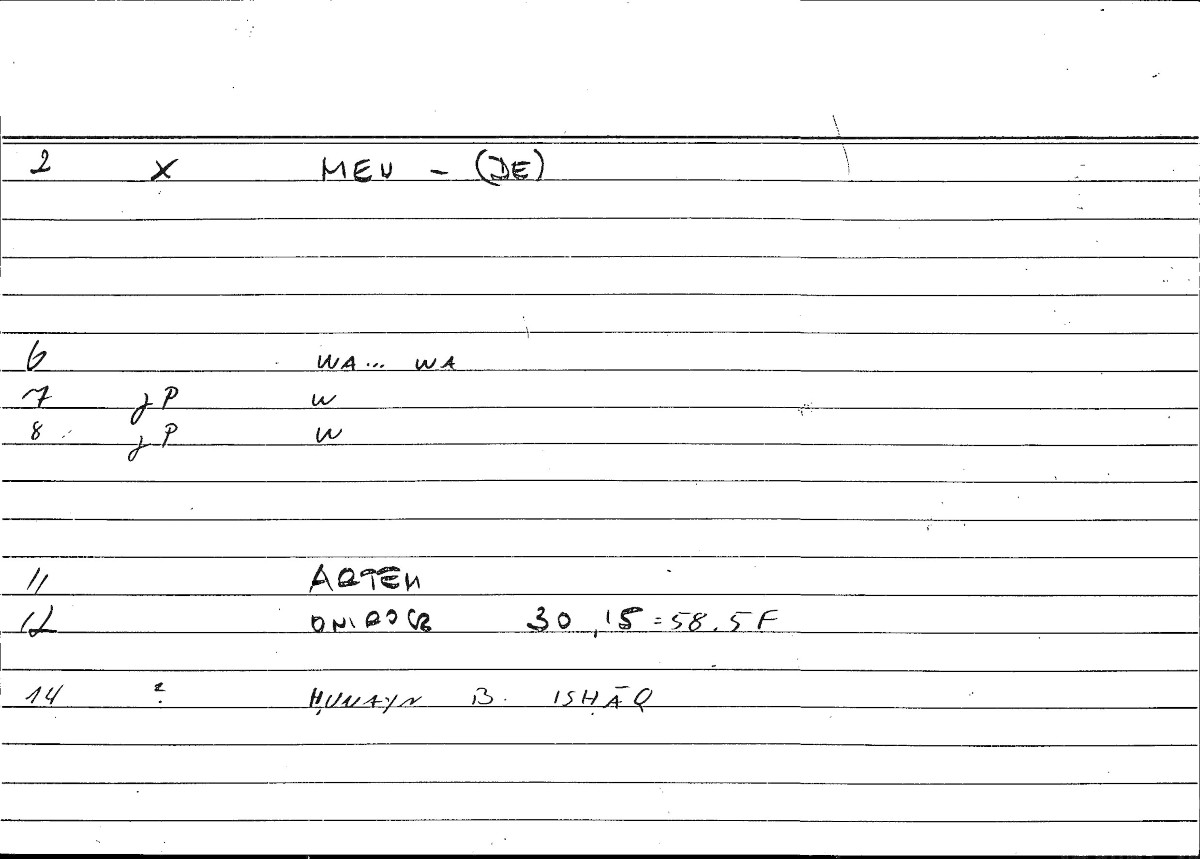 2 X MEN - (DE)
6 WA... WA
7 yP W
8 yP W
11 ARTEM
12 ONIROCR 30,15=58.5F
14 ? ḤUNAYN B. ISḤĀQ